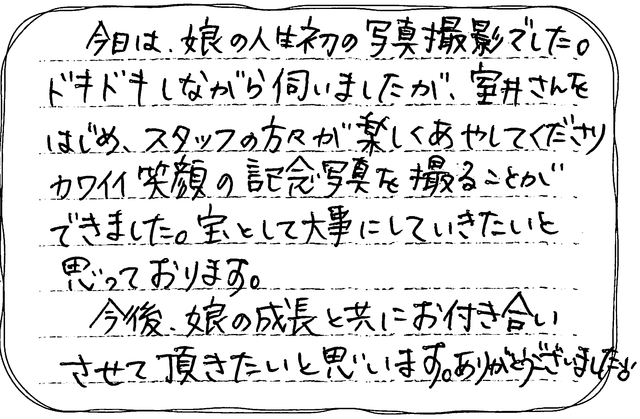 今日は、娘の人生初の写真撮影でした。
ドキドキしながら伺いましたが、室井さんを
はじめ、スタッフの方々が楽しくあやしてくださり
カワイイ笑顔の記念写真を撮ることが
できました。宝として大事にしていきたいと
思っております。
今後、娘の成長と共にお付き合い
させて頂きたいと思います。ありがとうございました